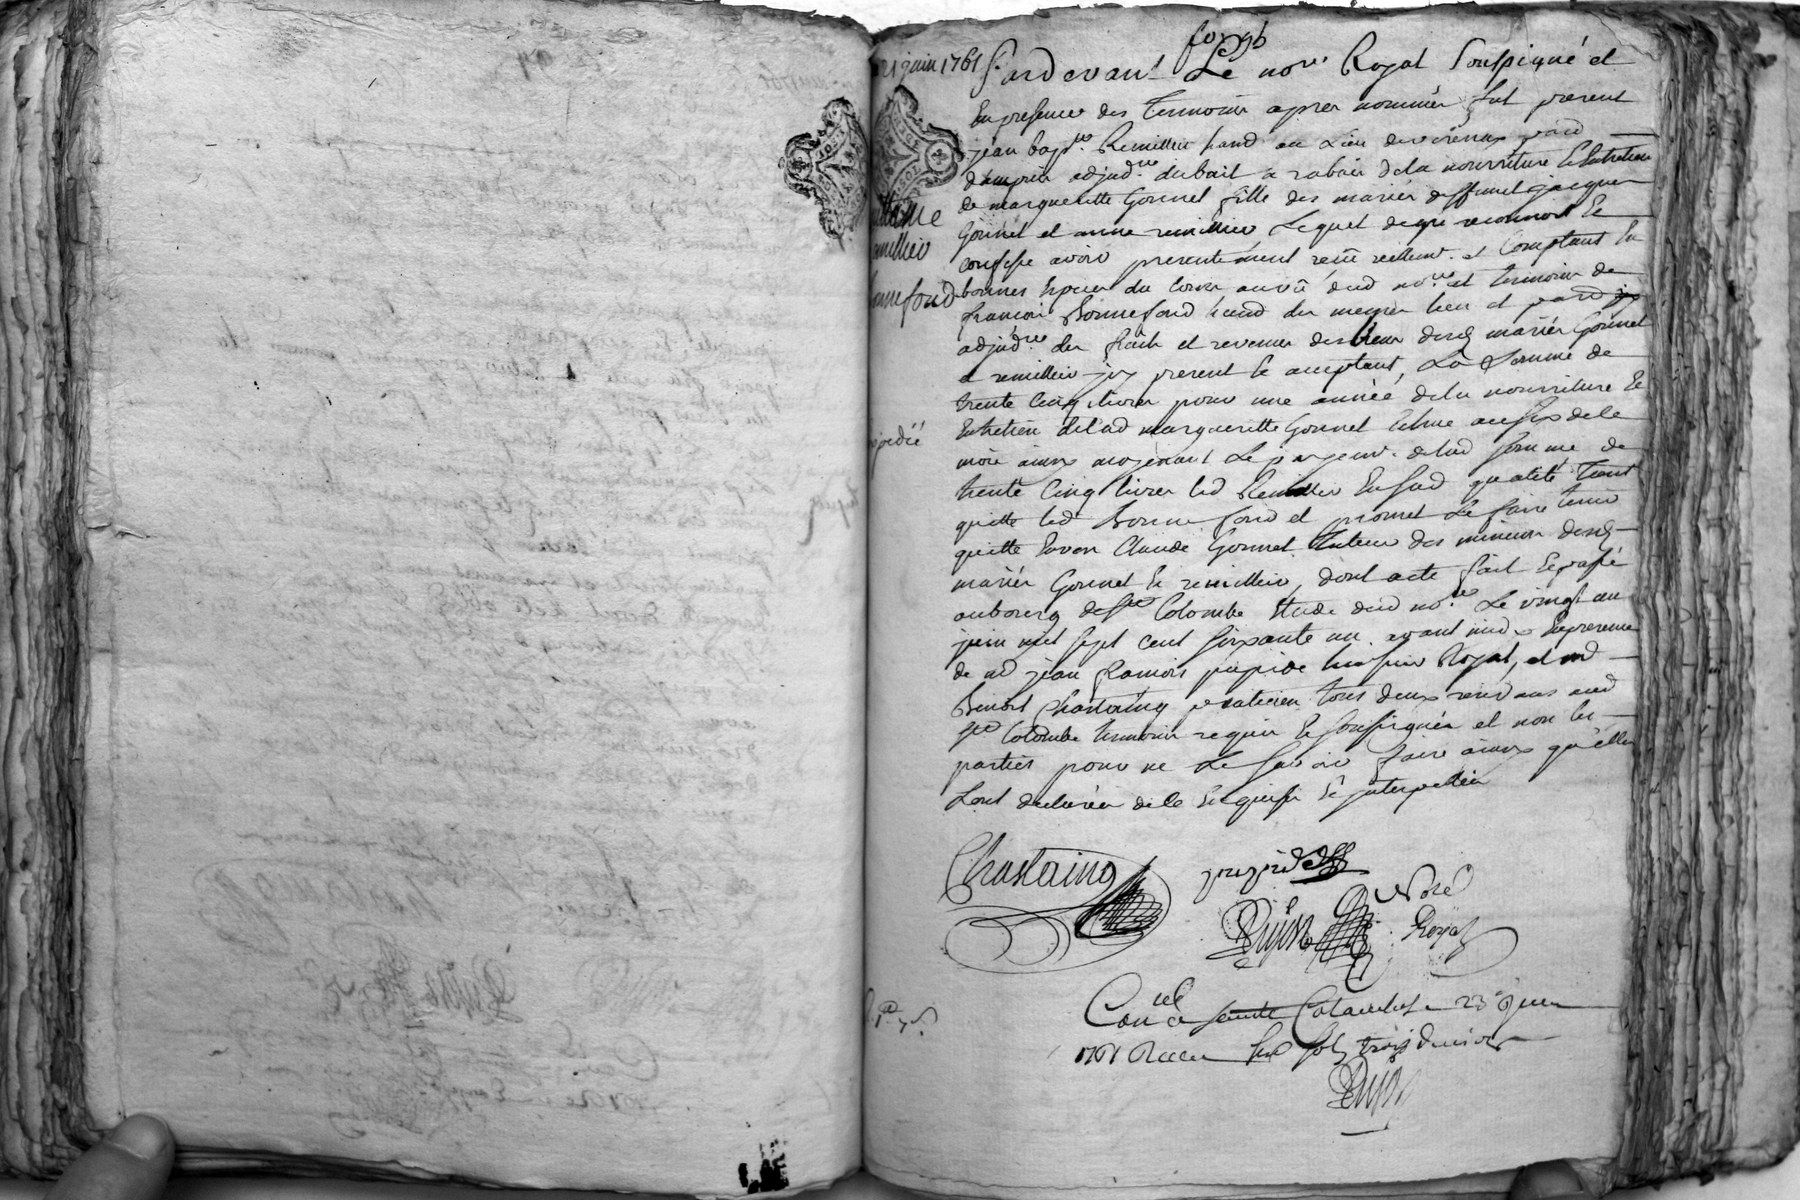 21 juin 1761
Pardevant Le no.re Royal Soussigné et
En presence des Temoins apres nommés fut present
jean bapt.te Remillieu hand au Lieu de
adjud.re du bail a rabais de la nourriture & Entretien
de margueritte Gonnet fille des mariés deffunct jacques
Gonnet et anne remillieu Lequel de gre reconnoit &
confesse avoir presentement reçu reellem.t et Comptant En
bonnes Especes du Cours au vû dud no.re et temoins de
francois Bonnefond hand du mesme lieu et par
adjud.re des fruits et revenus des biens desd mariés Gonnet
& remillieu jcy present & acceptant, La Somme de
trente Cinq livres pour une année de la nourriture &
Entretien de lad margueritte Gonnet Echue au six de ce
mois ainsy moyenant Le payem.t de lad somme de
trente Cinq livres led Remillieu En sad qualité Tient
quitte led Bonnefond et promet Le faire tenir
quitte Envers Claude Gonnet Tuteur des mineurs desd
mariés Gonnet & remillieu, dont acte fait & passé
au bourg de S.te Colombe Etude dud no.re Le vingt un
juin mil sept cent soixante un avant midy En presence
de m.e jean francois huissier Royal, et m.e
Benoit Chastaing praticien tous deux residans aud
S.te Colombe temoins requis & soussignés et non les
parties pour ne Le savoir faire ainsy qu'elles
L'ont declarées de ce Enquises & jnterpellées
Remillieu
Bonnefond
Expedié
Chastaing
Dujon
No.re
Royal
Con.lé a Sainte Colombe le 23 Juin
1761 Recu Six sols trois deniers
Dujon